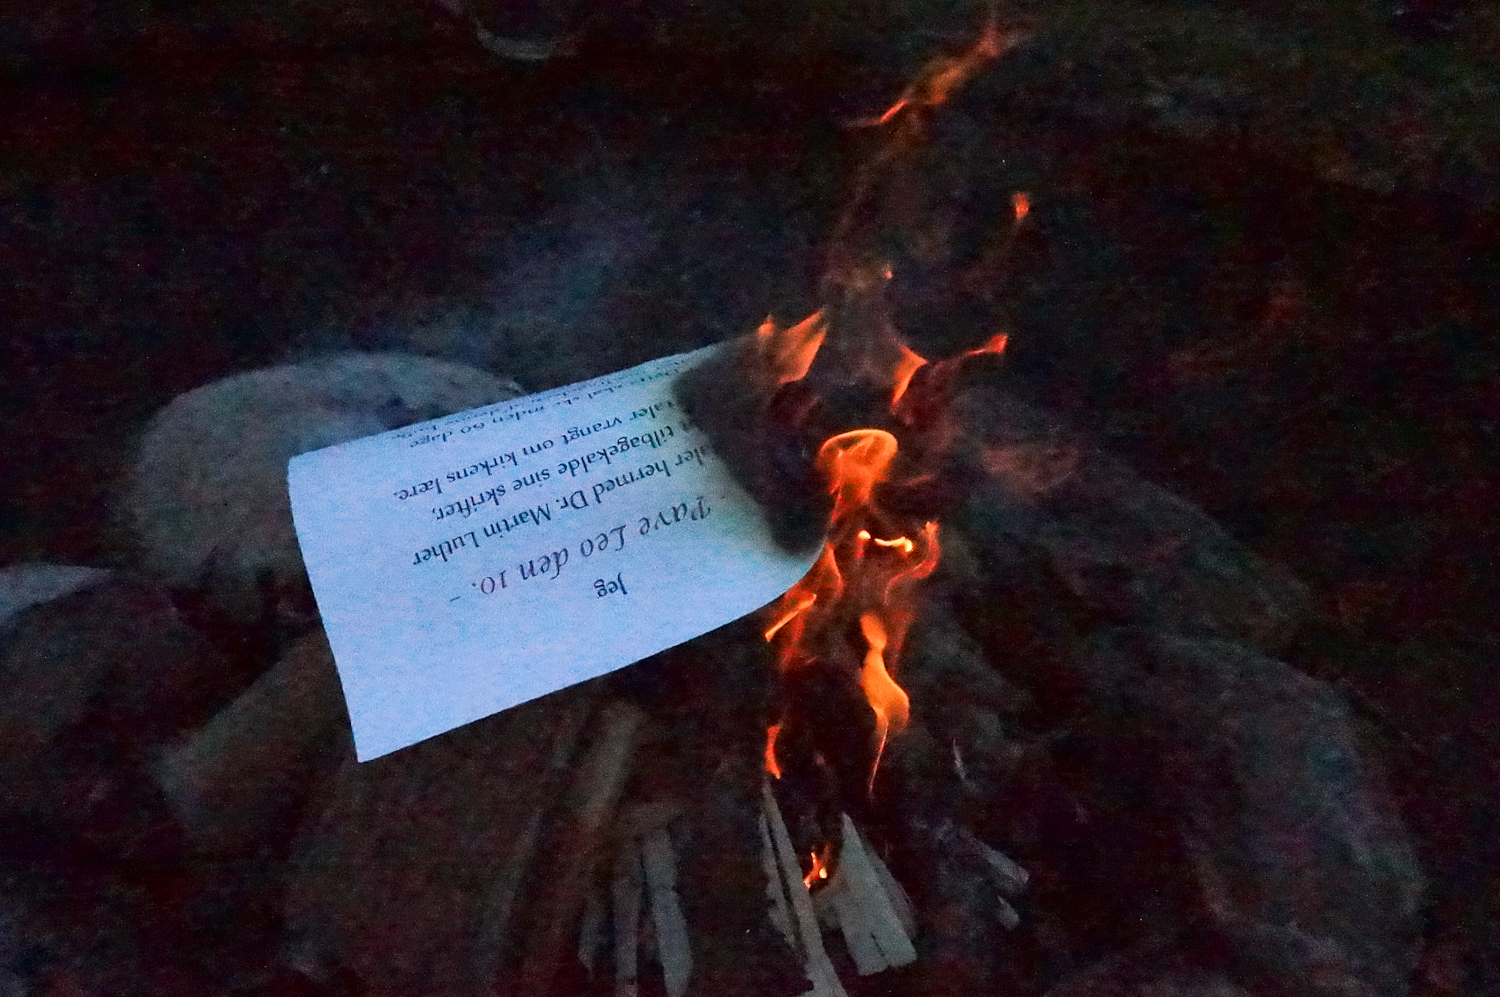 Jeg
Pave Leo den 10.
hermed Dr. Martin Luther
tilbagekalde sine skrifter,
taler vrangt om kirkens lære.
skal ske inden 60 dage